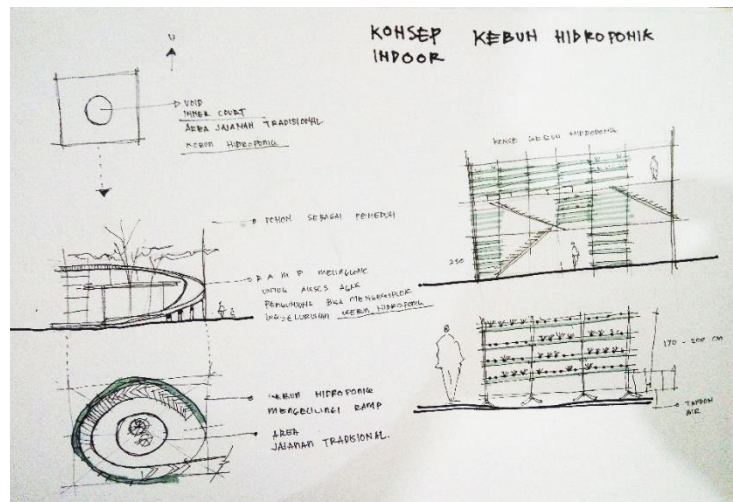 KONSEP KEBUN HIDROPONIK
INDOOR
U
VOID
INNER COURT
AREA JAJANAN TRADISIONAL
KEBUN HIDROPONIK
POHON SEBAGAI PENEDUH
RAMP MELINGKAR
UNTUK AKSES AGAR
PENGUNJUNG BISA MENGEKSPLOR
KESELURUHAN KEBUN HIDROPONIK
KEBUN HIDROPONIK
MENGELILINGI RAMP
AREA
JAJANAN TRADISIONAL.
KEBUN HIDROPONIK
250
170 - 200 CM
TANDON
AIR